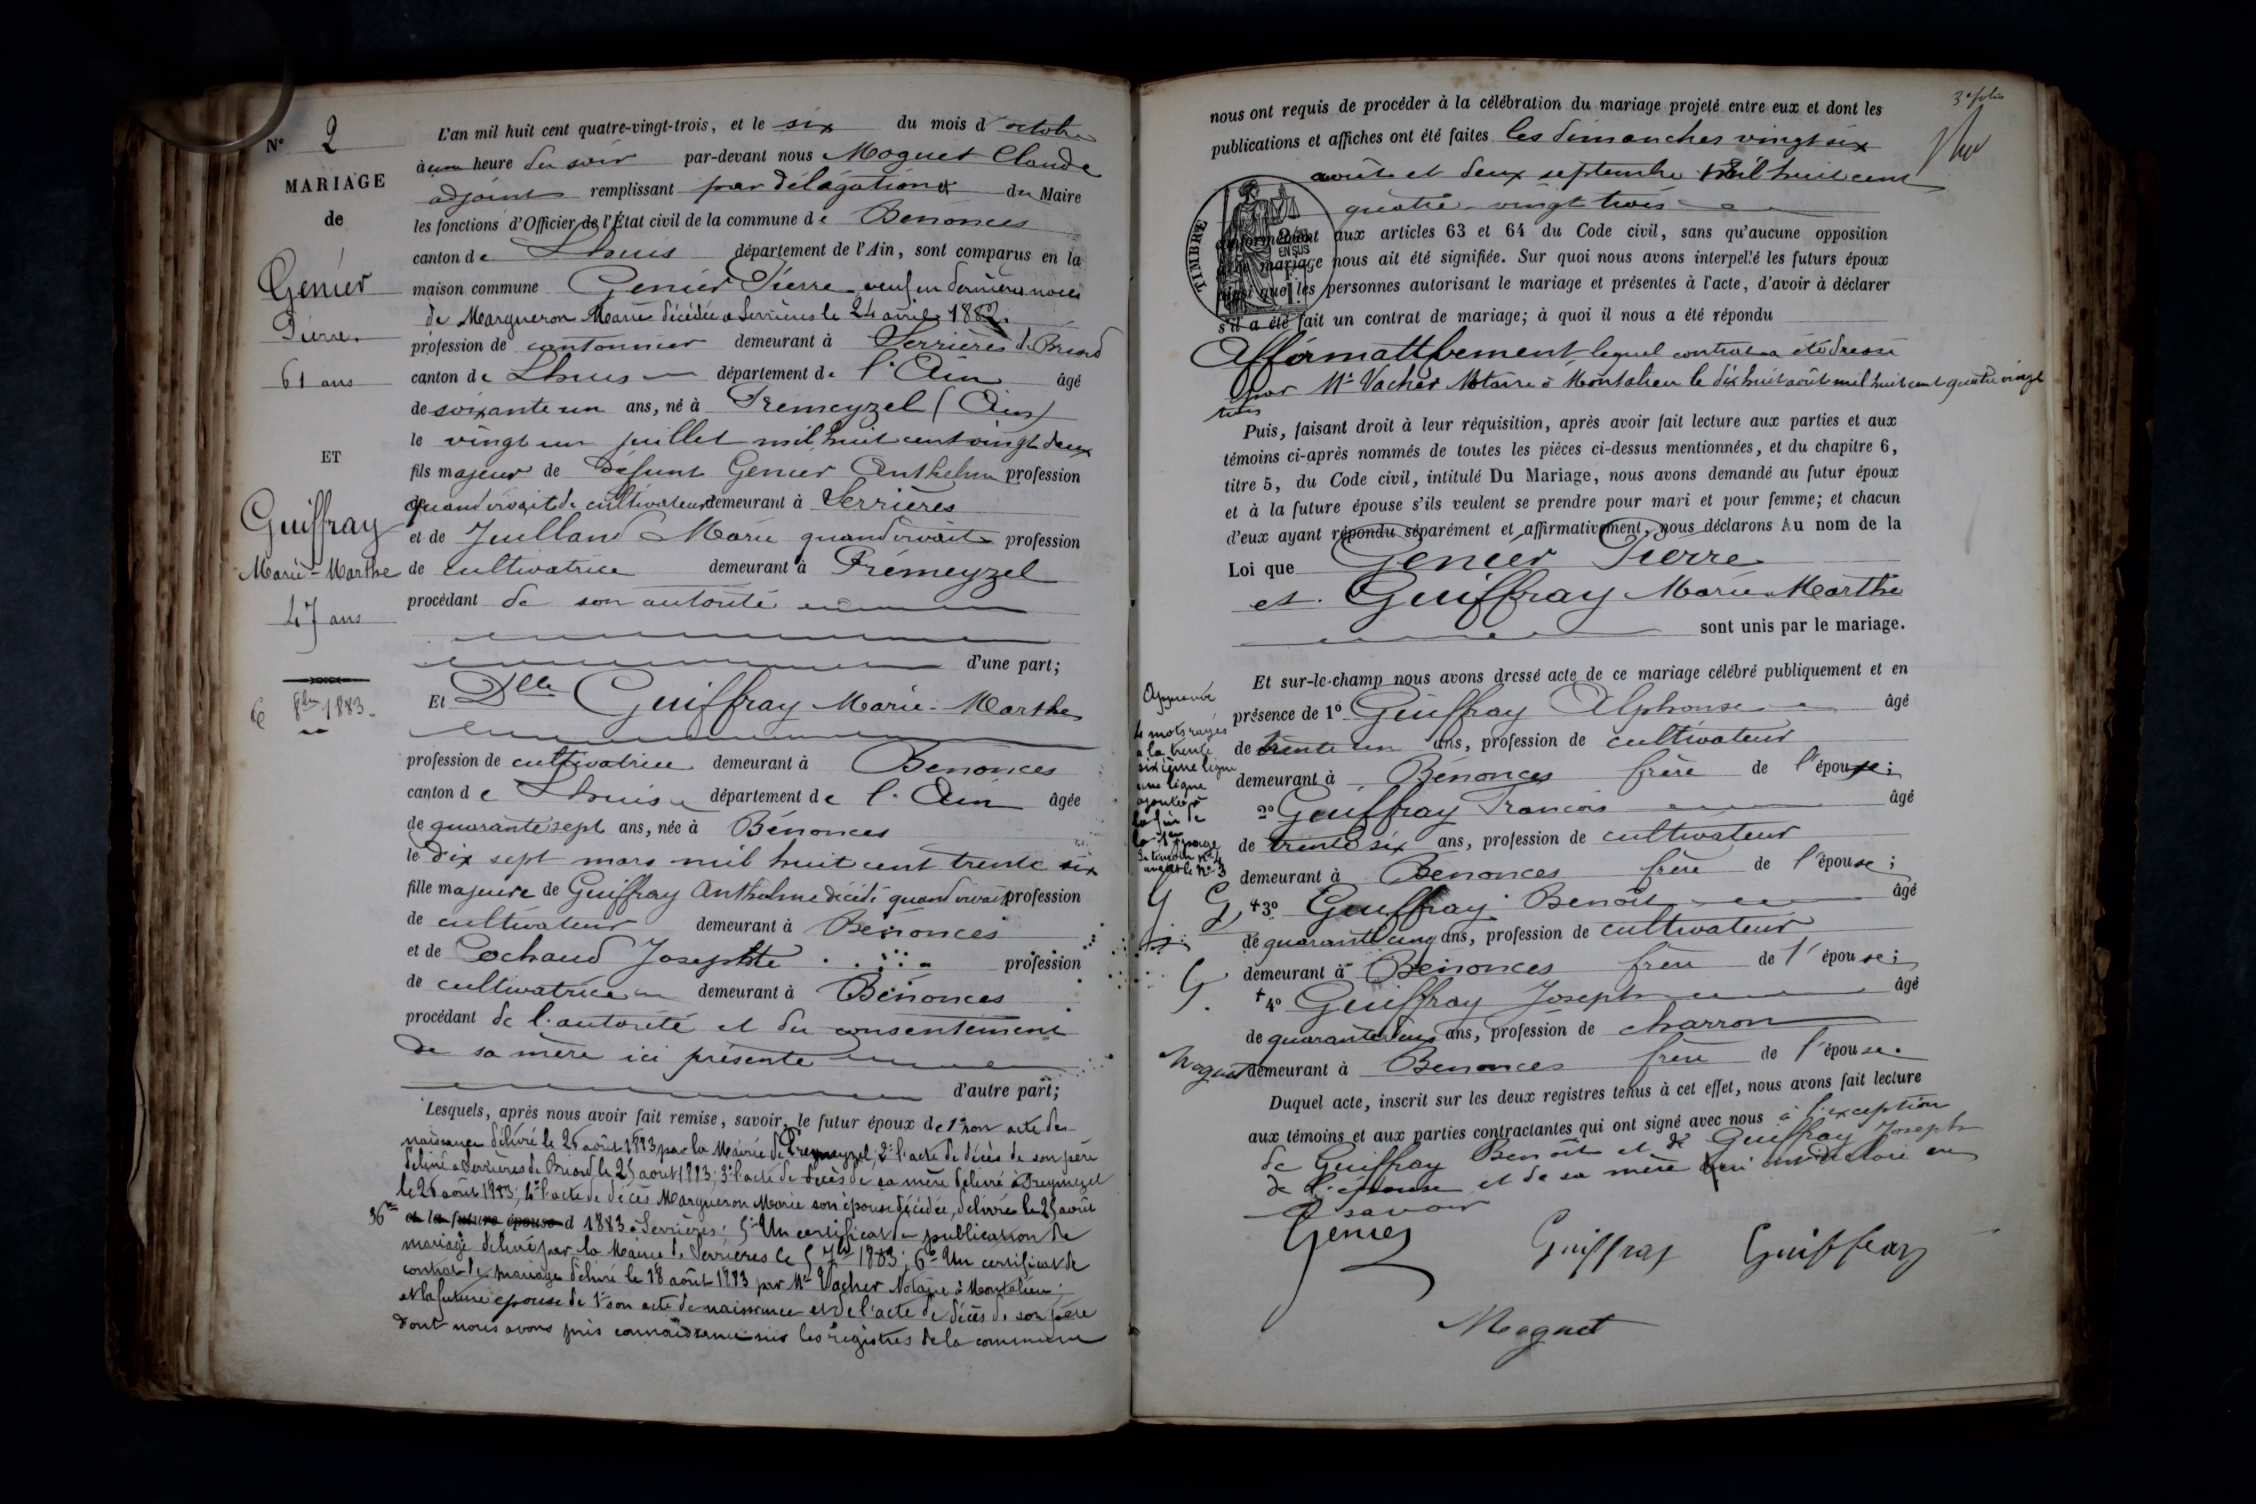 N° 2
MARIAGE
de
Genier
Pierre
61 ans
ET
Guiffray
Marie-Marthe
47 ans
6 8bre 1883.
L'an mil huit cent quatre-vingt-trois, et le six du mois d'octobre
à une heure du soir par-devant nous Moguet Claude
adjoint remplissant par délégation du Maire
les fonctions d'Officier de l'État civil de la commune de Benonces
canton de Lhuis département de l'Ain, sont comparus en la
maison commune Genier Pierre veuf en dernières noces
de Margueron Marie décédée à Serrières le 24 avril 1882.
profession de cantonnier demeurant à Serrières de Briord
canton de Lhuis département de l'Ain âgé
de soixante un ans, né à Prémeyzel (Ain)
le vingt un juillet mil huit cent vingt deux
fils majeur de défunt Genier Anthelme profession
quand vivait de cultivateur demeurant à Serrières
et de Juilland Marie quand vivait profession
de cultivatrice demeurant à Prémeyzel
procédant de son autorité
d'une part;
Et Dlle Guiffray Marie-Marthe
profession de cultivatrice demeurant à Benonces
canton de Lhuis département de l'Ain âgée
de quarante sept ans, née à Bénonces
le dix sept mars mil huit cent trente six
fille majeure de Guiffray Anthelme décédé quand vivait profession
de cultivateur demeurant à Bénonces
et de Cochaud Josephte profession
de cultivatrice demeurant à Bénonces
procédant de l'autorité et du consentement
de sa mère ici présente
d'autre part;
Lesquels, après nous avoir fait remise, savoir, le futur époux de 1° son acte de
naissance délivré le 26 août 1883 par la Mairie de Premeyzel, 2° l'acte de décès de son père
délivré à Serrières de Briord le 25 août 1883; 3° l'acte de décès de sa mère délivré à Preymezel
le 26 août 1883; 4° l'acte de décès Margueron Marie son épouse décédée, délivrée le 25 août
36me et la future épouse d 1883 à Serrières; 5° Un certificat de publication de
mariage délivré par la Mairie de Serrières le 5 7bre 1883; 6° Un certificat de
contrat de mariage délivré le 18 août 1883 par Me Vacher Notaire à Montalieu;
et la future épouse de 1° son acte de naissance et de l'acte de décès de son père
dont nous avons pris connaissance sur les registres de la commune
3e folio
nous ont requis de procéder à la célébration du mariage projeté entre eux et dont les
publications et affiches ont été faites les dimanches vingt six
août et deux septembre mil huit cent
quatre-vingt trois
TIMBRE
EN SUS
conformément aux articles 63 et 64 du Code civil, sans qu'aucune opposition
à ce mariage nous ait été signifiée. Sur quoi nous avons interpellé les futurs époux
ainsi que les personnes autorisant le mariage et présentes à l'acte, d'avoir à déclarer
s'il a été fait un contrat de mariage; à quoi il nous a été répondu
Affirmattivement lequel contrat a été dressé
par Me Vacher Notaire à Montalieu le dix huit août mil huit cent quatre vingt
trois
Puis, faisant droit à leur réquisition, après avoir fait lecture aux parties et aux
témoins ci-après nommés de toutes les pièces ci-dessus mentionnées, et du chapitre 6,
titre 5, du Code civil, intitulé Du Mariage, nous avons demandé au futur époux
et à la future épouse s'ils veulent se prendre pour mari et pour femme; et chacun
d'eux ayant répondu séparément et affirmativement, nous déclarons Au nom de la
Loi que Genier Pierre
et Guiffray Marie Marthe
sont unis par le mariage.
Et sur-le-champ nous avons dressé acte de ce mariage célébré publiquement et en
présence de 1° Guiffray Alphonse âgé
de trente un ans, profession de cultivateur
demeurant à Bénonces frère de l'épouse;
2° Guiffray Francois âgé
de trente six ans, profession de cultivateur
demeurant à Benonces frère de l'épouse;
+3° Guiffray Benoît âgé
de quarante cinq ans, profession de cultivateur
demeurant à Bénonces frère de l'épouse;
+4° Guiffray Joseph âgé
de quarante deux ans, profession de charron
demeurant à Benonces frère de l'épouse.
Duquel acte, inscrit sur les deux registres tenus à cet effet, nous avons fait lecture
aux témoins et aux parties contractantes qui ont signé avec nous à l'exception
de Guiffray Benoît et de Guiffray Joseph
de l'épouse et de sa mère qui ont déclaré ne
savoir
Approuvé
4 mots rayés
à la trente
sixième ligne
une ligne
ajoutée à
la fin de
la 1re page
le témoin N° 4
avant le N° 3
G G
G
Moguet
Genier Guiffray Guiffray
Moguet